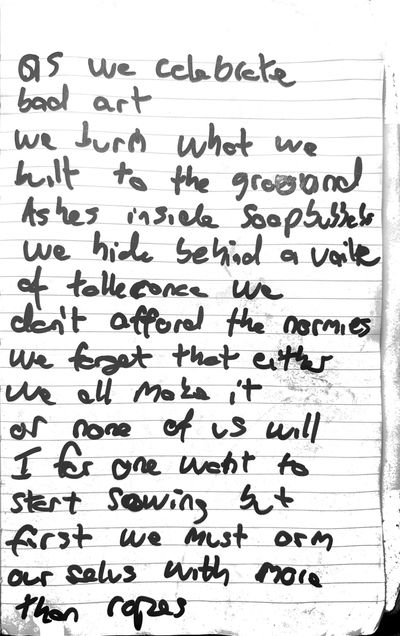 as we celebrate
bad art
we burn what we
built to the ground
Ashes inside soapbubbels
we hide behind a vaile
of tollerance we
don't afford the normies
we forget that either
we all make it
or none of us will
I for one want to
start sowing but
first we must arm
our selvs with more
than ropes